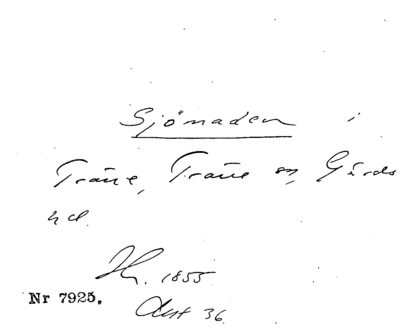 Sjömaden i
Träne, Träne sn, Gärds
hd.
1855
Nr 7925.
36